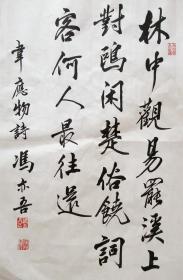 林中觀易罷溪上
對鷗閑楚俗饒詞
客何人最往還
韋應物詩 馮亦吾